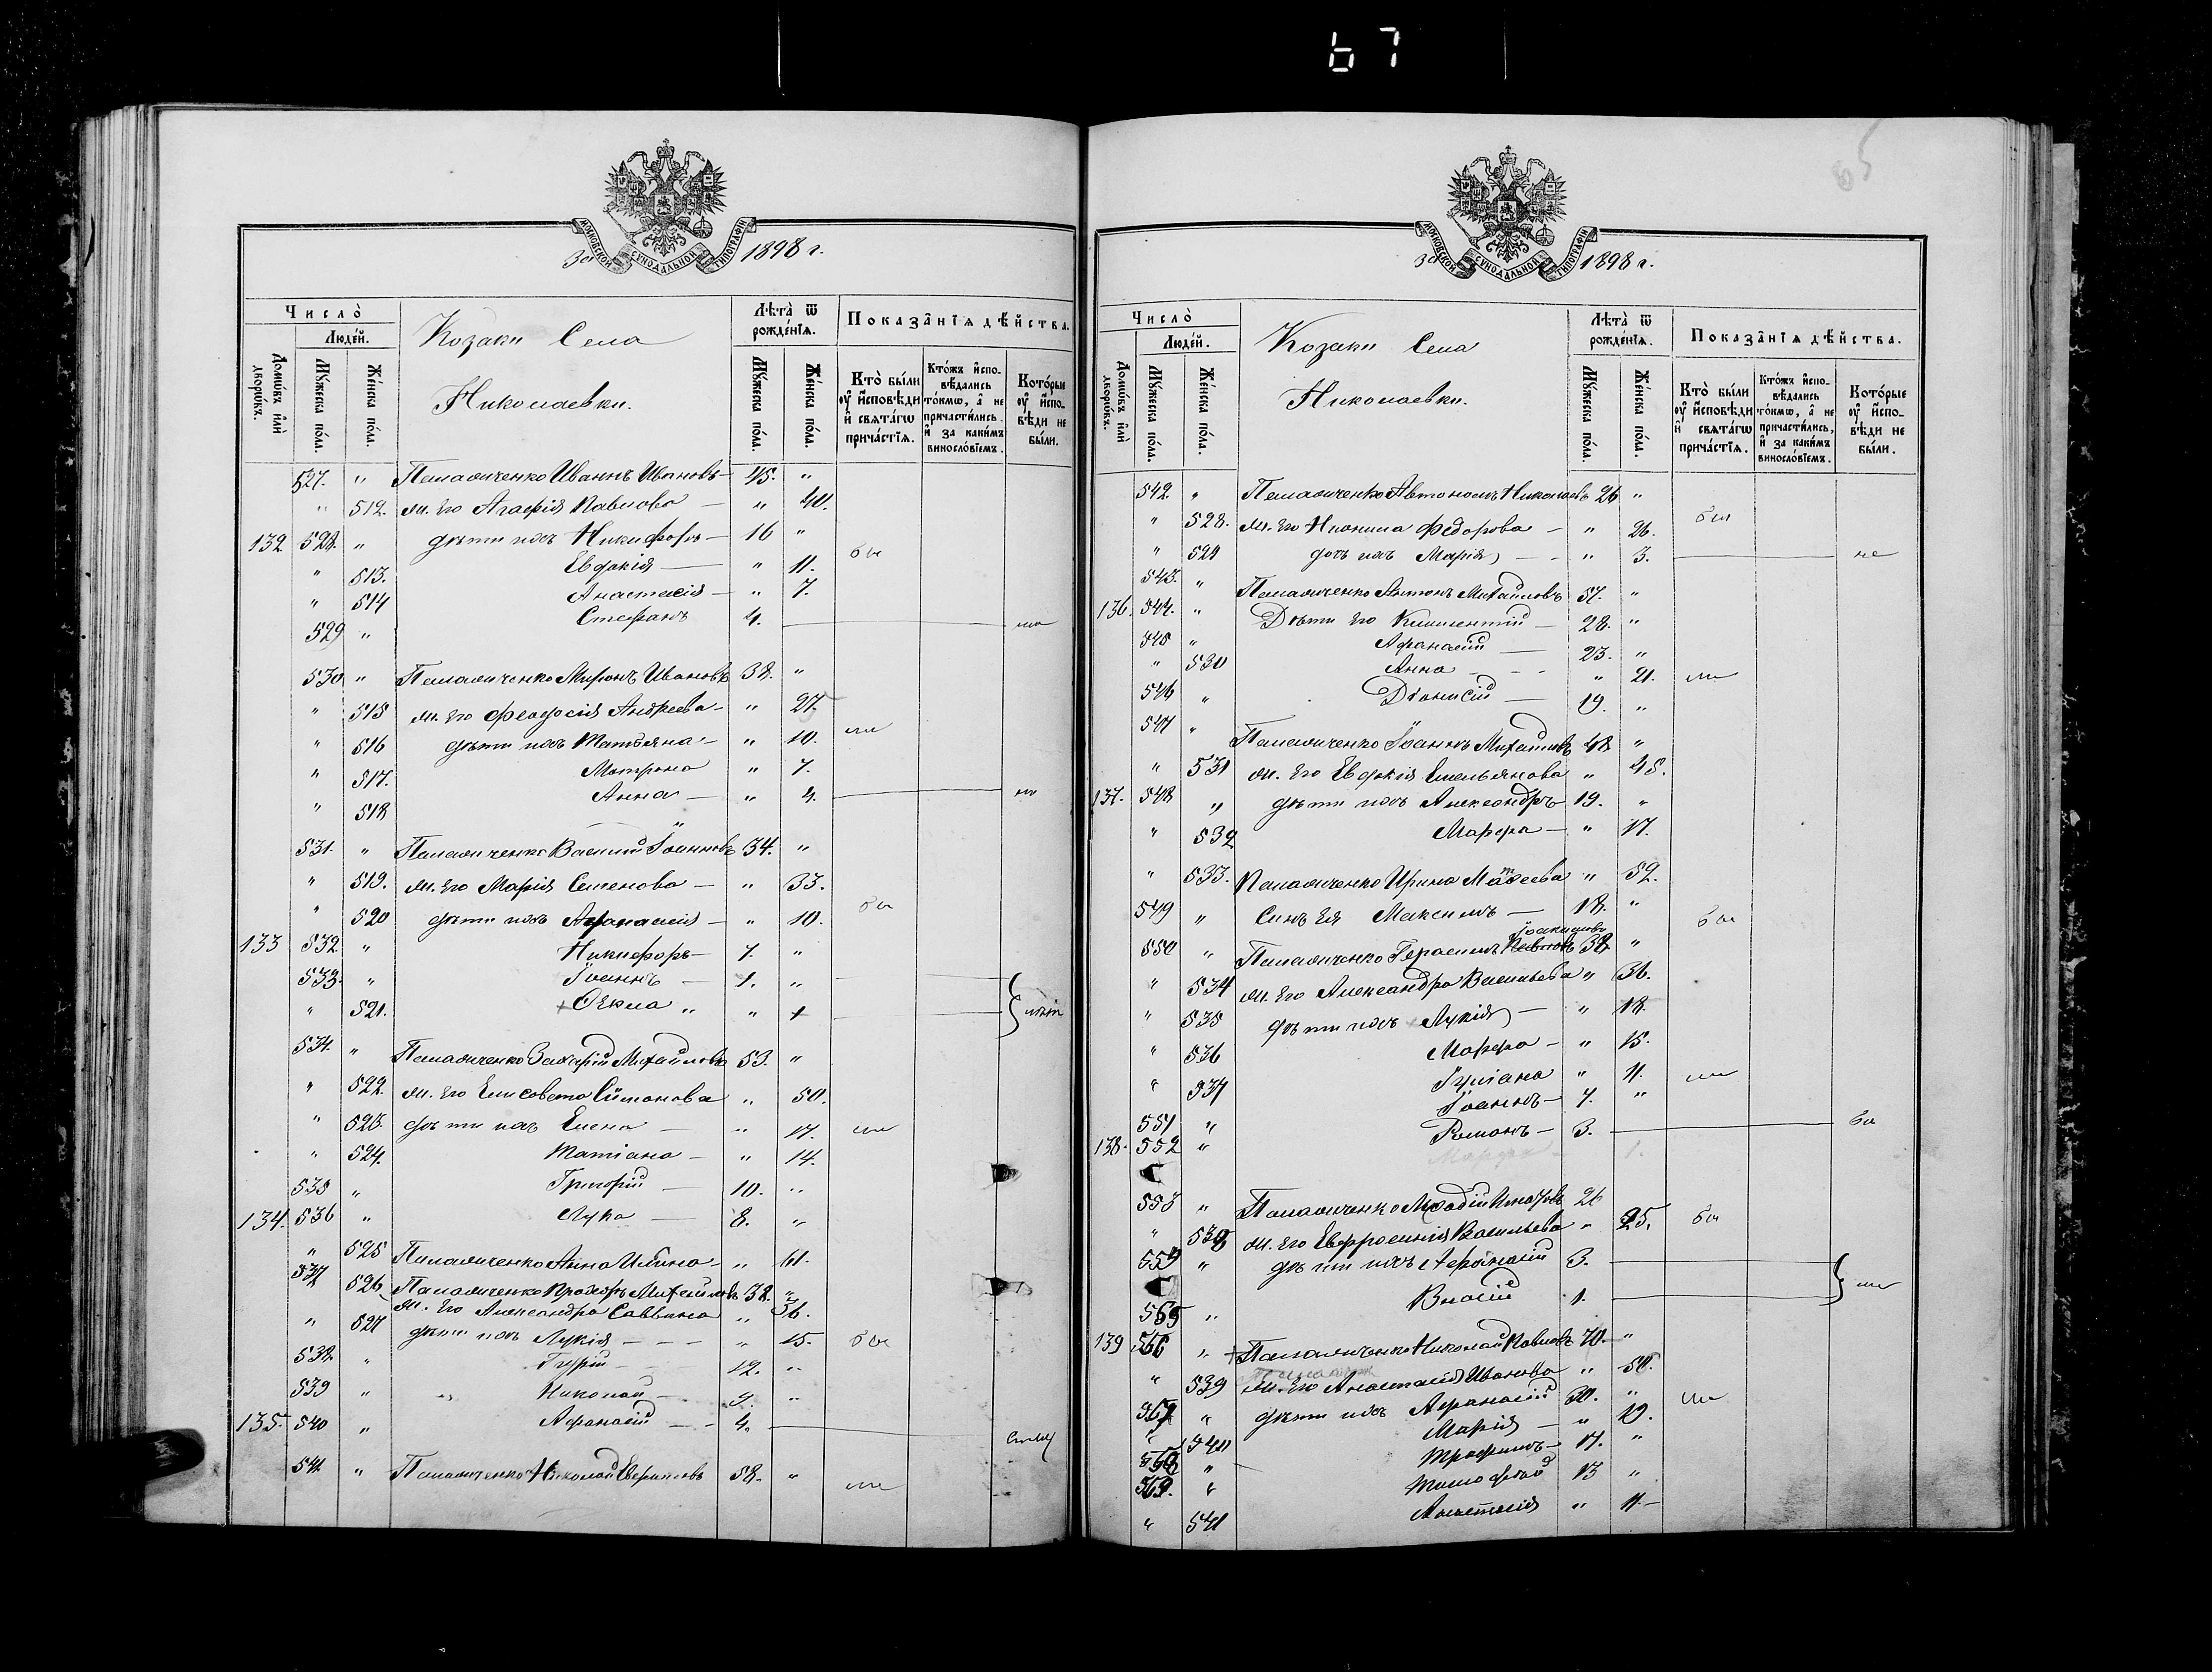 67
МОСКОВСКОЙ СУНОДАЛЬНОЙ ТИПОГРАФІИ
За 1898 г.
Число̀
Люде́й.
Домѡ́въ и҆лѝ дворѡ́въ.
Мꙋ́жеска по́ла.
Же́нска по́ла.
Козаки Села
Николаевки.
Лѣта̀ ѿ рожде́нїѧ.
Мꙋ́жеска по́ла.
Же́нска по́ла.
Показа̑нїѧ дѣ́йства.
Кто̀ бы́ли ᲂу҆ и҆́сповѣди и҆ свѧта́гѡ прича́стїѧ.
Кто́жъ и҆спо-вѣ́дались то́кмѡ, а҆ не причасти́лись, и҆ за каки́мъ винослові́емъ.
Кото́рые ᲂу҆ и҆́спо-вѣди не бы́ли.
527. " Паламиченко Иваннъ Ивановъ - 45. "
" 512. ж. Его Агафія Павлова - " 40.
132 528. " дѣти ихъ Никифоръ - 16 "
" 513. Евдокія - " 11. бы
" 514 Анастасія - " 7.
529 " Стефанъ 4.
530 " Паламиченко Миронъ Ивановъ 38. "
" 515 ж. Его Феодосія Андреева - " 27.
" 516 дѣти ихъ Татьяна - " 10.
" 517. Матрона " 7.
" 518 Анна - " 4.
531. " Паламиченко Василій Іоанновъ 34. "
" 519. ж. Его Марія Семенова - " 33.
" 520 дѣти ихъ Афанасія - " 10. бы
133 532. " Никифоръ - 7. "
533. " Іоаннъ - 1. "
" 521. + Ѳекла " " 1
534. " Паламиченко Захарій Михайловъ 53. "
" 522. ж. Его Елисовета Симонова " 50.
" 523. дѣти ихъ Елена - " 17.
" 524. Татіана - " 14.
535 " Григорій - 10. "
134. 536 " Лука - 8. "
" 525 Паламиченко Анна Ильина - " 61.
537 526 Паламиченко Прохоръ Михайловъ 38. "
ж. Его Александра Саввина " 36.
" 527 дѣти ихъ Лукія - - - " 15. бы
538. " Гурій - 12. "
539 " Николай - 9. "
135. 540 " Афанасій - - 4.
541. " Паламиченко Николай 58. "
65
МОСКОВСКОЙ СУНОДАЛЬНОЙ ТИПОГРАФІИ
За 1898 г.
Число̀
Люде́й.
Домѡ́въ и҆лѝ дворѡ́въ.
Мꙋ́жеска по́ла.
Же́нска по́ла.
Козаки Села
Николаевки.
Лѣта̀ ѿ рожде́нїѧ.
Мꙋ́жеска по́ла.
Же́нска по́ла.
Показа̑нїѧ дѣ́йства.
Кто̀ бы́ли ᲂу҆ и҆́сповѣди и҆ свѧта́гѡ прича́стїѧ.
Кто́жъ и҆спо-вѣ́дались то́кмѡ, а҆ не причасти́лись, и҆ за каки́мъ винослові́емъ.
Кото́рые ᲂу҆ и҆́спо-вѣди не бы́ли.
542. " Паламиченко Автономъ Николаевъ 26 "
" 528. ж. Его Нионила Федорова - " 26. бы
" 529 дочь ихъ Марія - - " 3. не
543. " Паламиченко Антонъ Михайловъ 57. "
136. 544. " Дѣти Его Климентій - 28. "
545 " Афанасій - 23. "
" 530 Анна - - - " 21.
546 " Діонисій - 19. "
547 " Паламиченко Іоаннъ Михайловъ 48 "
" 531 ж. Его Евдокія Емельянова " 45.
137. 548 " дѣти ихъ Александръ 19. "
" 532 Марфа - " 17.
" 533. Паламиченко Ирина Матѳеева " 52.
549 " Сынъ Ея Максимъ - 18. "
550 " Паламиченко Герасимъ Павловъ Іоакимовъ 38. " бы
" 534 ж. Его Александра Васильева " 36.
" 535 дѣти ихъ Лукія - " 18.
" 536 Марфа - " 15.
" 537 Іуліана " 11.
551 " Іоаннъ - 7. "
138. 552 " Романъ - 3. бы
Марфа - 1.
553 " Паламиченко 26
" 538 ж. Его Евфросинія Васильева " 25. бы
559 " дѣти ихъ Афанасій 3.
565 " Власій 1.
139 566 " + Паламиченко Николай Павловъ 70. "
" 539 ж. Его Анастасія Иванова " 50.
567 " дѣти ихъ Афанасій 20. "
" 540 Марія - " 19.
568 " Трофимъ - 17. "
569. " Тимофей 13 "
" 541 Анастасія " 11. -